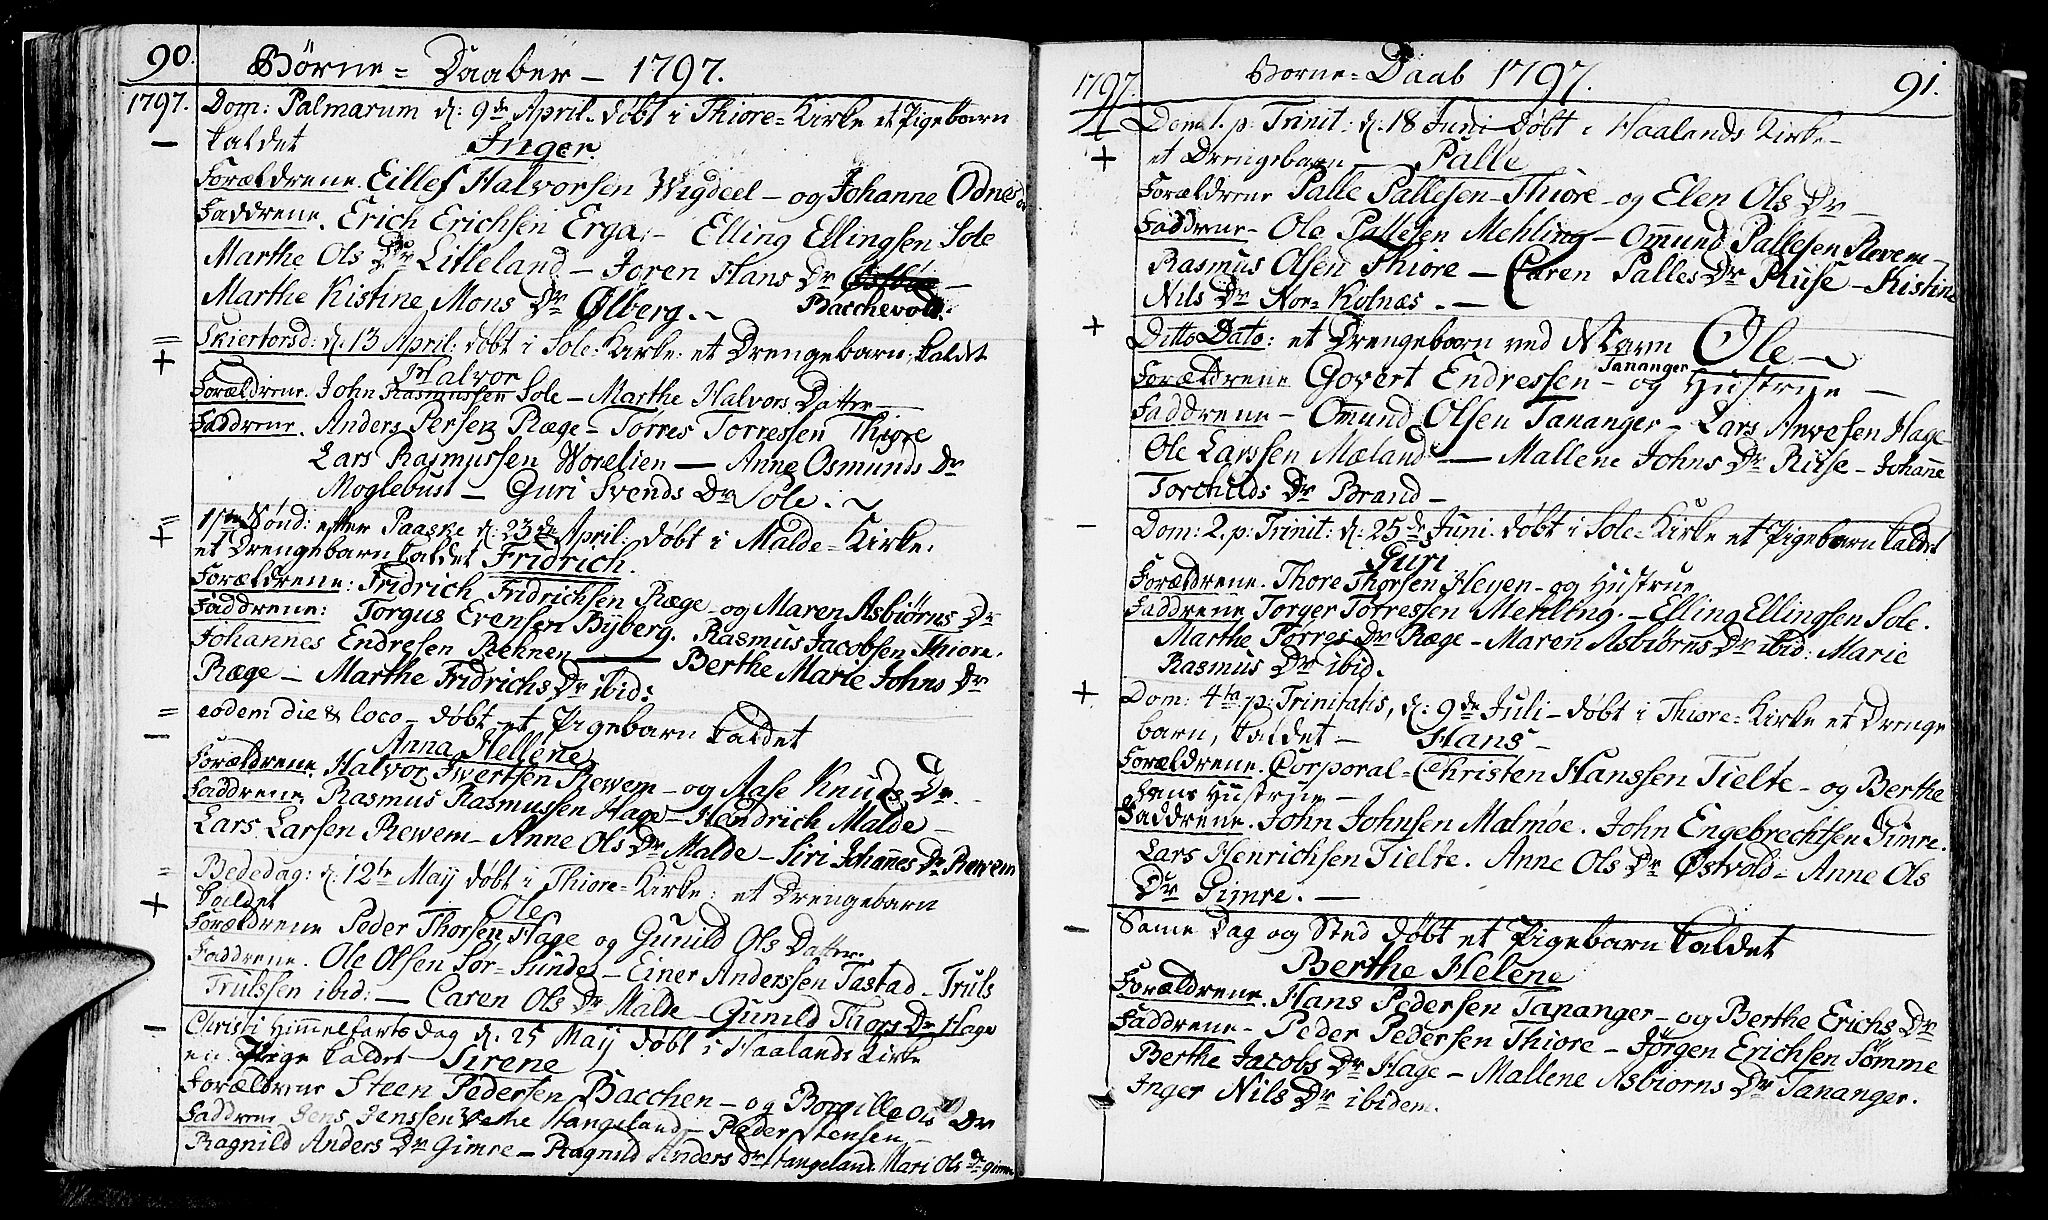 90.
Börne = Daaber – 1797.
1797.
Dom: Palmarum d: 9de April. döbt i Thiore = Kirke et Pigebarn
kaldet Inger.
Forældrene. Eillef Halvorsen Wigdeel – og Johanne Odnes
Faddrene. Erich Erichsen Erga – Elling Ellingsen Sole
Marthe Ols Dr Litleland – Joren Hans Dr
Marthe Kistine Mons Dr Ølberg. ~ Bacchevold.
Skiertorsd: d. 13 April: döbt i Sole = Kirke: et Drengebarn, kaldt
Halvor
Forældrene. John Rasmussen Sole – Marthe Halvors Datter –
Faddrene. Anders Persen Ræge – Torres Torressen Thiore
Lars Rasmussen Worelien – Anne Osmunds Dr
Moglebust – Guri Svends Dr Sole. ~
1ste Sönd: efter Paaske d. 23de April: döbt i Malde = Kirke.
et Drengebarn kaldet Fridrich.
Forældrene: Fridrich Fridrichsen Ræge – og Maren Asbiörns Dr
Faddrene: Torgus Evensen Byberg. Rasmus Jacobsen Thiore.
Johannes Endresen Rehnen – Berthe Marie Johns Dr
Ræge – Marthe Fridrichs Dr ibid:
eodem die & loco – döbt et Pigebarn kaldet
Anna Hellene
Forældrene. Halvor Iwertsen Rewem – og Aase Knuds Dr
Faddrene. Rasmus Rasmussen Hage – Hendrich Malde –
Lars Larsen Rewem – Anne Ols Dr Malde – Siri Johannes Dr Rewem
Bededag: d: 12te Maij döbt i Thiore = Kirke: et Drengebarn
kaldet Ole
Forældrene Peder Thorsen Hage og Gunild Ols Datter.
Faddrene. Ole Olsen Sør = Sunde – Einer Anderssen Tastad – Truls
Trulssen ibid: – Caren Ols Dr Malde – Gunild Thors Dr Hage
Christi Himmelfarts Dag d. 25 Maij döbt i Haalands Kirke
en Pige kaldet – Sirene
Forældrene Steen Pedersen Bacchen – og Borgille Ols Dr
Faddrene Jens Jenssen Stangeland – Peder Stensen –
Ragnild Anders Dr Gimre – Ragnild Anders Dr Stangeland Mari Ols Dr Gimre
1797.
Börne = Daab 1797.
91.
Dom 1. p: Trinit: d. 18 Juni döbt i Haalands Kirke –
et Drengebarn – Palle
Forældrene Palle Pallesen Thiore – og Elen Ols Dr –
Faddrene – Ole Pallesen Mehling – Omund Pallesen Revem –
Rasmus Olsen Thiore – Caren Palles Dr Riise – Kistine
Nils Dr Nor = Kolnæs. –
Ditto Dato: et Drengebarn ved Navn Ole ~
Forældrene Govert Endressen – Tananger og Hustrue –
Faddrene – Omund Olsen Tananger – Lars Hage
Ole Larssen Mæland – Mallene Johns Dr Riise – Johanne
Torchilds Dr Brand –
Dom: 2. p: Trinit: d: 25de Juni. döbt i Sole = Kirke et Pigebarn kaldet
Guri
Forældrene. Thore Thorsen Heyen – og Hustrue
Faddrene Torger Torressen Mehling. – Elling Ellingsen Sole.
Marthe Törres Dr Ræge – Maren Asbiörns Dr ibid: Marie
Rasmus Dr ibid.
Dom: 4ta p: Trinitatis, d: 9de Juli – döbt i Thiore = Kirke et Drenge
barn, kaldet – Hans –
Forældrene. Corporal = Christen Hanssen Tielte – og Berthe
hans Hustrue –
Faddrene. John Johnsen Malmöe. John Engebrechtsen Gimre.
Lars Henrichsen Tielte. Anne Ols Dr Østvold – Anne Ols
Dr Gimre. –
Same Dag og Sted döbt et Pigebarn kaldet
Berthe Helene
Forældrene. Hans Pedersen Tananger – og Berthe Erichs Dr
Faddrene – Peder Pedersen Thiore – Jörgen Erichsen Sömme
Berthe Jacobs Dr Hage – Mallene Asbiorns Dr Tananger.
Inger Nils Dr ibidem.